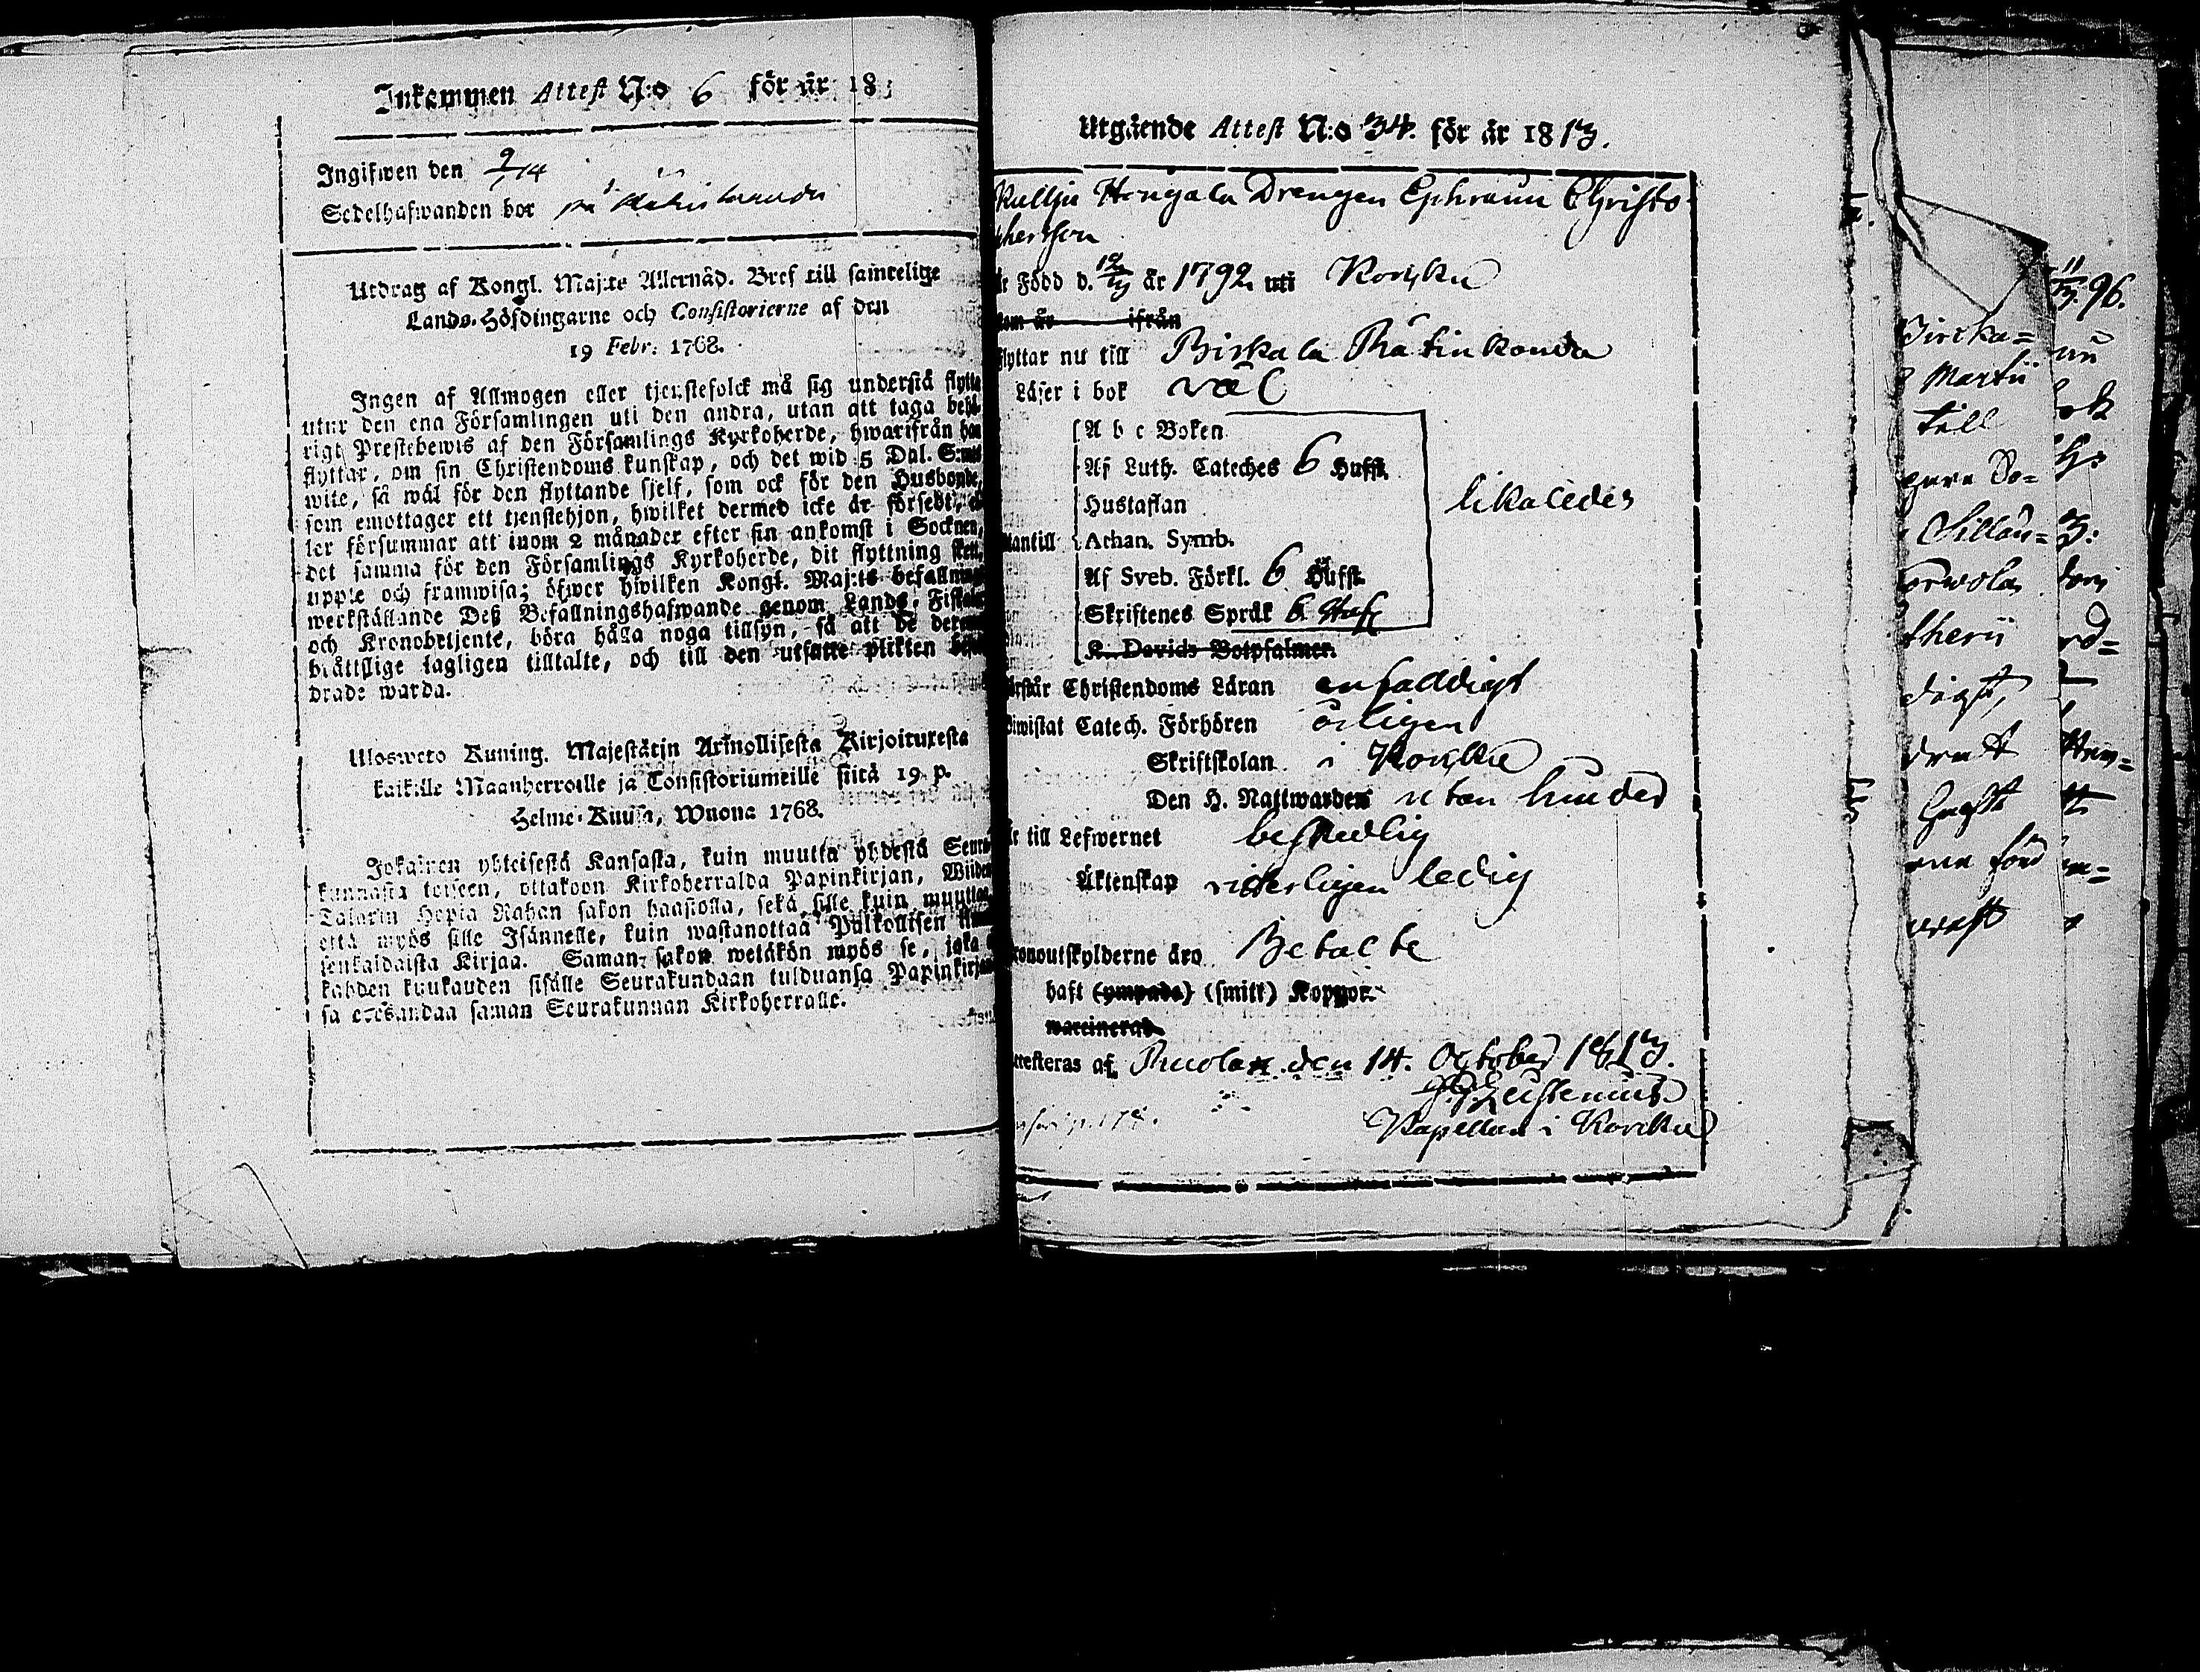 Inkommen Attest N:o 6 för år 18
Ingifwen den 9/1 14
Sedelhafwanden bor på
Utdrag af Kongl. Maj:ts Allernåd. Bref till samtelige
Lands-Höfdingarne och Consistorierne af den
19 Febr. 1768.
Ingen af Allmogen eller tjenstefolck må sig understå flytta
utur den ena Församlingen uti den andra, utan att taga behö-
rigt Prestebewis af den Församlings Kyrkoherde, hwarifrån han
flyttar, om sin Christendoms kunskap, och det wid 5 Dal. S:mts
wite, så wäl för den flyttande sjelf, som ock för den Husbonde,
som emottager ett tjenstehjon, hwilket dermed icke är försedt, el-
ler försummar att inom 2 månader efter sin ankomst i Socknen,
det samma för den Församlings Kyrkoherde, dit flyttning skett,
uppte och framwisa; öfwer hwilken Kongl. Maj:ts befallning
werkställande Deß Befallningshafwande genom Lands-Fiskaler
och Kronobetjente, böra hålla noga tillsyn, så att de dermed
bråttslige lagligen tilltalte, och till den utsatte plikten befor-
drade warda.
Ulosweto Kuning. Majestätin Armollisesta Kirjoituxesta
kaikille Maanherroille ja Consistoriumeille siitä 19. p.
Helme-Kuusa, Wuona 1768.
Jokainen yhteisestä Kansasta, kuin muutta yhdestä Seura-
kunnasta toiseen, ottakoon Kirkoherralda Papinkirjan, Wiiden
Talarin Hopia Rahan sakon haastolla, sekä sille kuin muuttaa
että myös sille Isännelle, kuin wastanottaa Palkollisen ilman
senkaldaista Kirjaa. Saman sakon wetäkön myös se, joka ei
kahden kuukauden sisälle Seurakundaan tulduansa Papinkirjan
sa edesandaa saman Seurakunnan Kirkoherralle.
Utgående Attest N:o 34. för år 1813.
Kullju Hongala Drengen Ephraim Christo-
phersson
är Född d. 12/9 år 1792 uti Korsku
som är ifrån
flyttar nu till Birkala Rätinkanda
Läser i bok väl
A b c Boken
Af Luth. Cateches 6 Hufst.
Hustaflan likaledes
utantill Athan. Symb.
Af Sveb. Förkl. 6 Hufst.
Skriftenes Språk 6 Huf
K. Davids Botpsalmer.
Förstår Christendoms Läran enfaldigt
Biwistat Catech. Förhören årligen
Skriftskolan i Korsku
Den H. Nattwarden utan hinder
Är till Lefwernet beskedlig
Äktenskap witterligen ledig
Kronoutskylderne äro Betalte
haft (ympade) (smitt) Koppor.
waccinerad
Attesteras af Ruola den 14. October 1813.
Kapellan i Korsku
11/3. 96.
Martii
till
therii
digt,